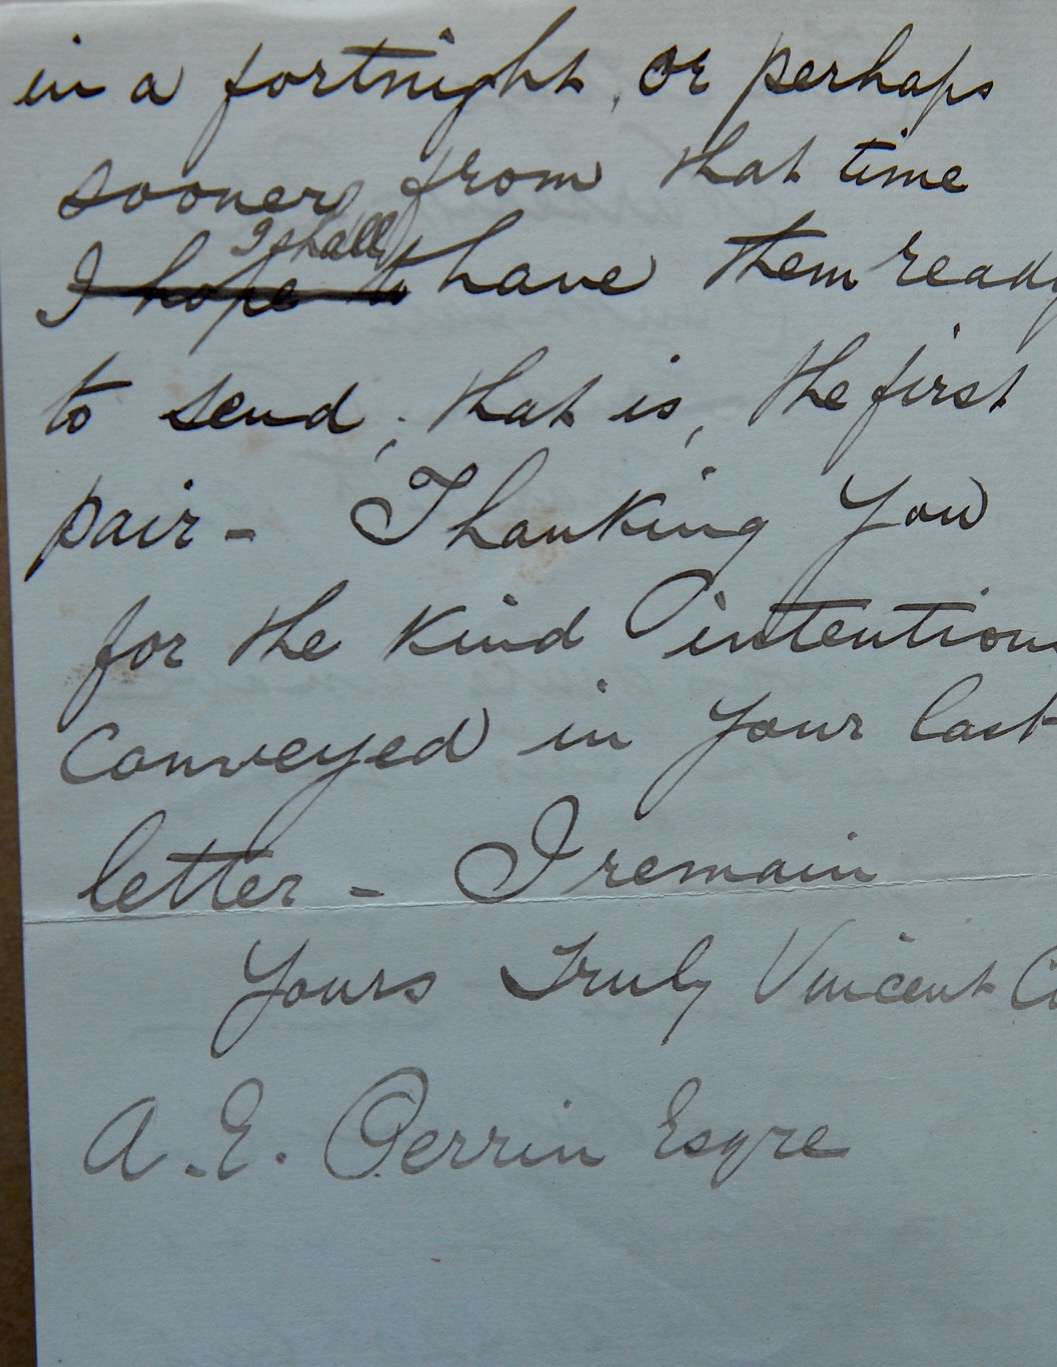 in a fortnight, or perhaps
sooner from that time
I shall
I hope to have them ready
to send; that is, the first
pair - Thanking you
for the kind intention
conveyed in your last
letter - I remain
Yours Truly Vincent
A. E. Perrin Esqre